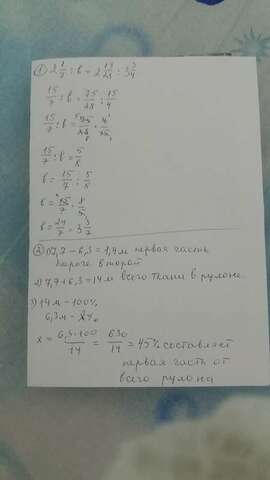 ① 2 1/7 : в = 2 19/28 : 3 3/4
15/7 : в = 75/28 : 15/4
15/7 : в = 75/28 · 4/15
15/7 : в = 5/7
в = 15/7 : 5/7
в = 24/7 = 3 3/7
② 1) 7,7 − 6,3 = 1,4 м первая часть
второй
2) 7,7 + 6,3 = 14 м всего ткани в рулоне
3) 14 м − 100%
6,3 м − х%
х = 6,3·100/14 = 630/14 = 45% составляет
первая часть от
всего рулона